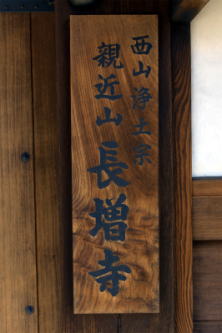 西山浄土宗
親近山
長増寺